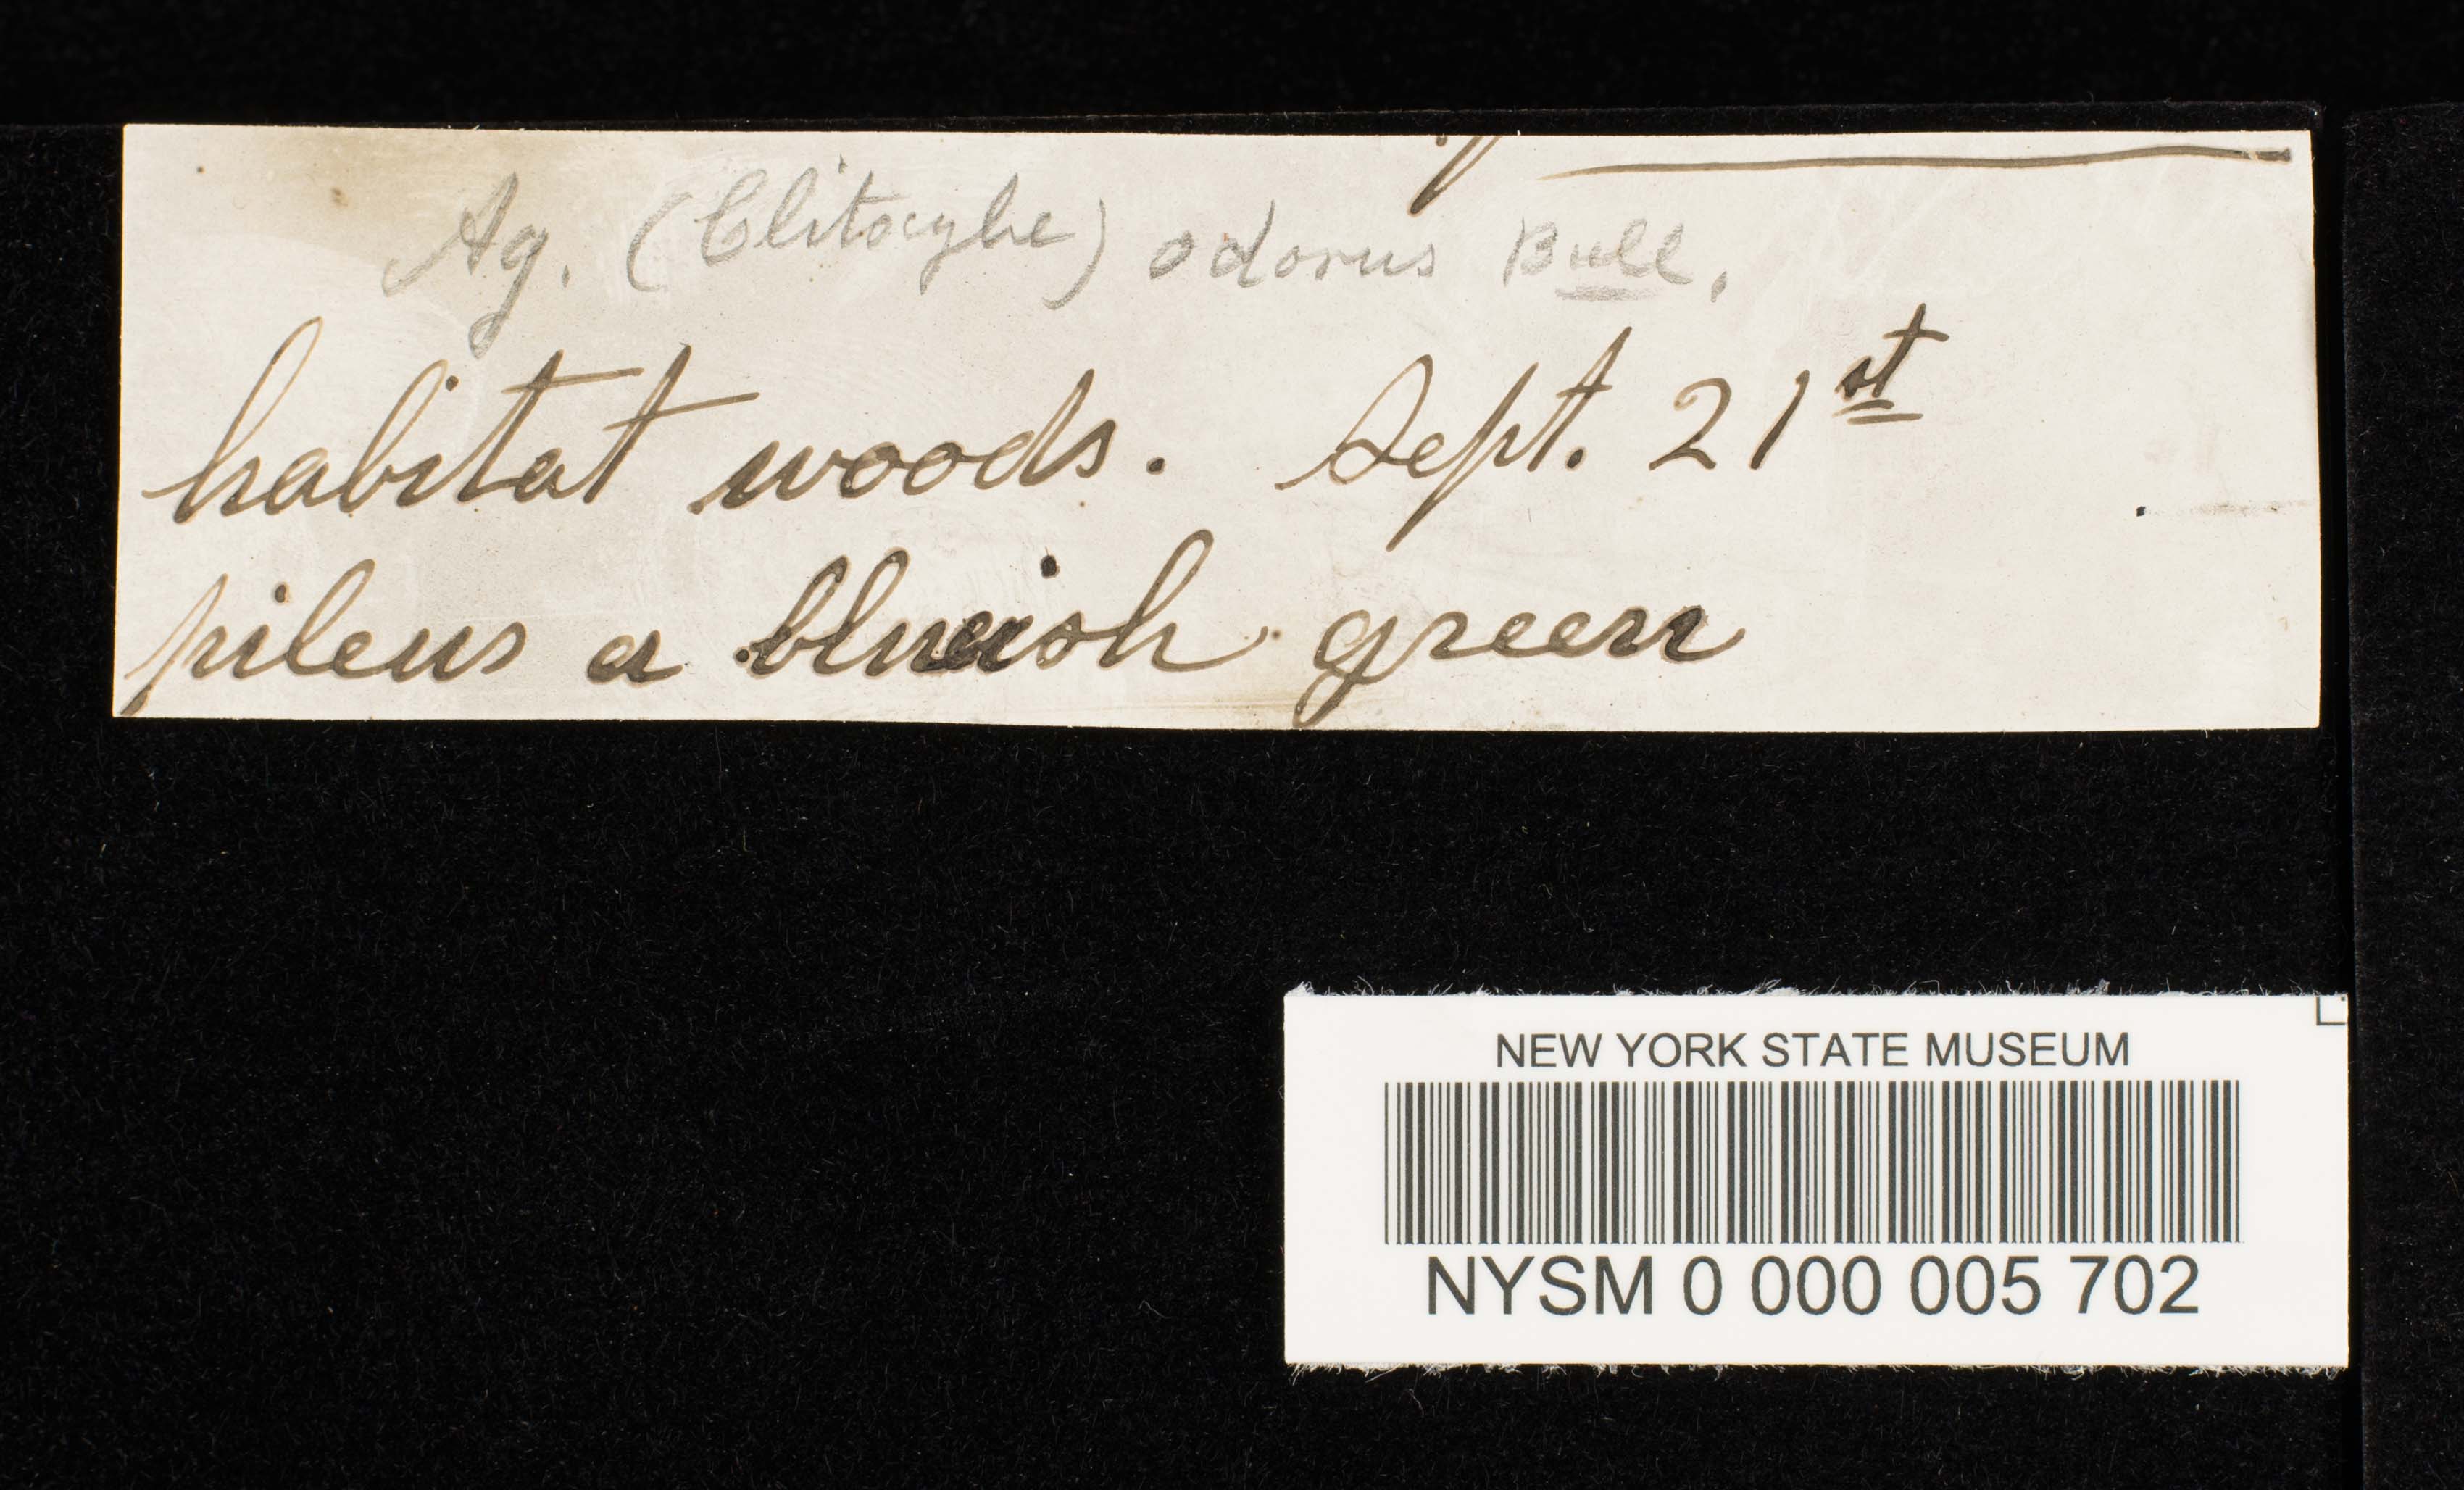 Ag. (Clitocybe) odorus Bull.
habitat woods. Sept. 21st
pileus a blueish green
NEW YORK STATE MUSEUM
NYSM 0 000 005 702